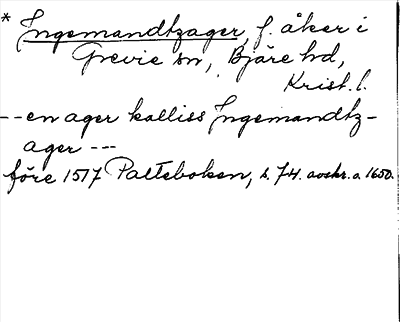 * Ingemandtzager, f. åker i
Grevie sn, Bjäre hd,
Krist. l.
-- en ager kalliss Ingemandtz-
ager ---
före 1517 Palteboken, s. 74. avskr. a. 1650.